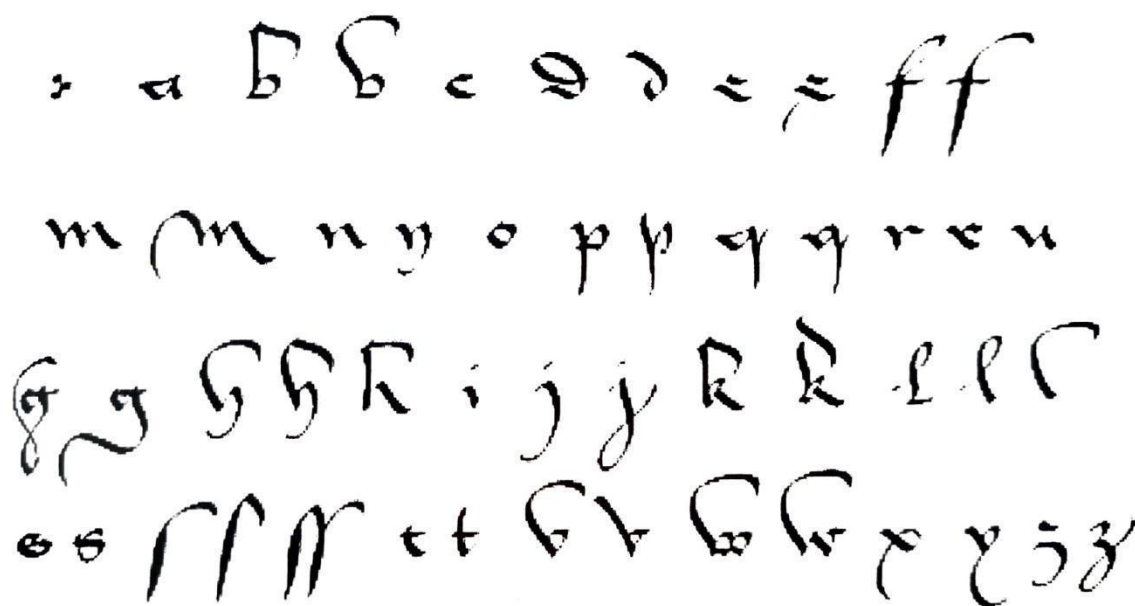 a b b c d d e e f f
m m n y o p p q q r r u
g g h h h i j j k k l l l
s s ſ ſ ſſ t t v v w w x y z z